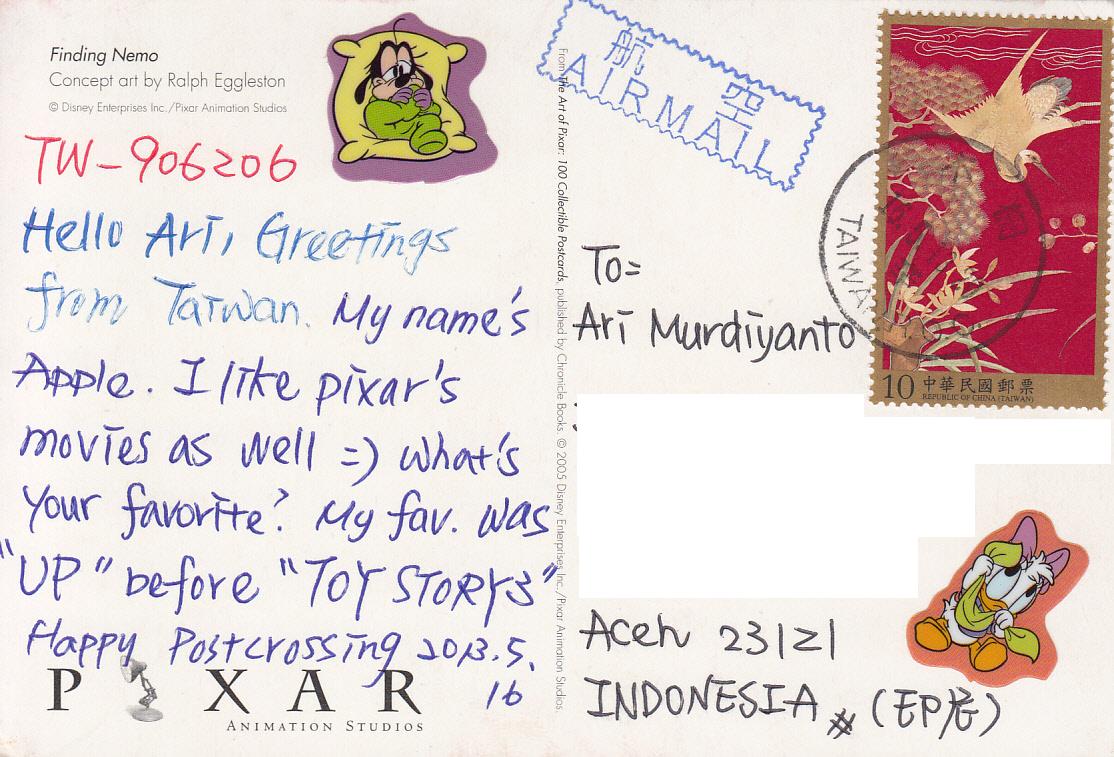 Finding Nemo
Concept art by Ralph Eggleston
© Disney Enterprises Inc./Pixar Animation Studios
TW-906206
Hello Ari, Greetings
from Taiwan. My name's
Apple. I like pixar's
movies as well =) what's
your favorite? My fav. was
"UP" before "TOY STORY3"
Happy Postcrossing 2013.5.
16
PIXAR
ANIMATION STUDIOS
From The Art of Pixar: 100 Collectible Postcards, published by Chronicle Books. © 2005 Disney Enterprises Inc./Pixar Animation Studios.
航空
AIRMAIL
TAIWAN
10 中華民國郵票
REPUBLIC OF CHINA (TAIWAN)
To=
Ari Murdiyanto
Aceh 23121
INDONESIA # (印尼)